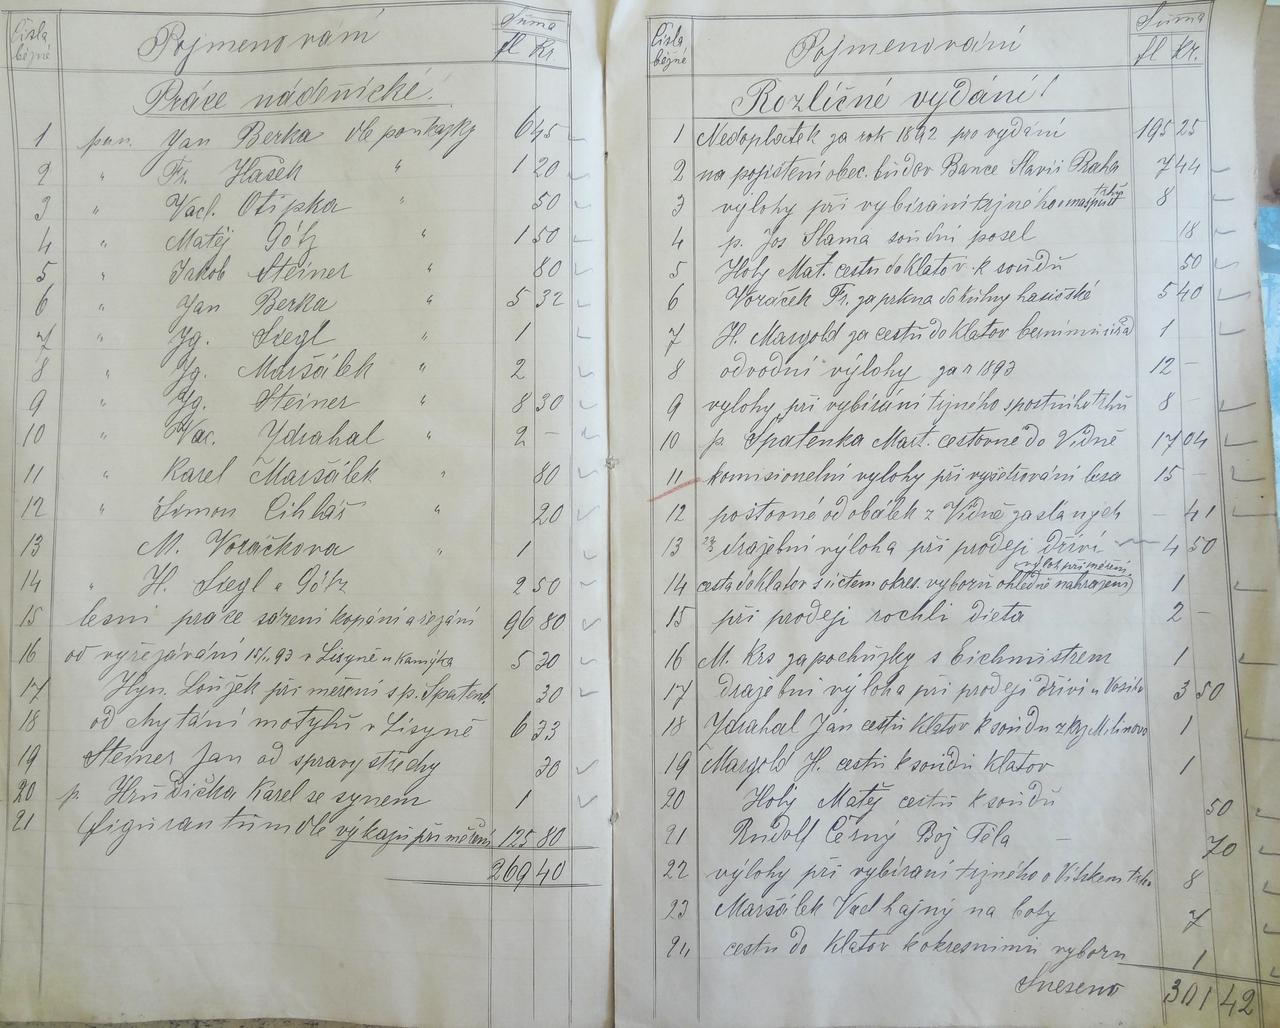 Čísla běžné Pojmenování Suma fl kr.
Práce nádenické!
1 pan. Jan Berka dle poukazky 6 45
2 " Fr. Hašek " 1 20
3 " Vacl. Otipka " 50
4 " Matěj Götz " 1 50
5 " Jakob Steiner " 80
6 " Jan Berka " 5 32
7 " Jg. Siegl " 1
8 " Jg. Maršálek " 2
9 " Jg. Steiner " 8 30
10 " Vac. Zdrahal " 2 –
11 " Karel Maršálek " 80
12 " Šimon Cihlář " 20
13 M. Voráčkova " 1
14 " H. Siegl a Götz 2 50
15 lesní práce sázení kopání a řezání 96 80
16 od vyřezávání 93 v Lisyně u Kamýka 5 30
17 Hyn. Loužek při měření s p. Špatenk. 30
18 od chytání motylů v Lisyně 6 33
19 Steiner Jan od spravy střechy 30
20 p. Hrudička Karel se synem 1
21 figurantům dle výkazu při měření 125 80
269 40
Čísla běžné Pojmenování Suma fl kr.
Rozličné vydání!
1 Nedoplatek za rok 1892 pro vydání 195 25
2 na pojistění obec. budov Bance Slavii Praha 7 44
3 výlohy při vybírání tržného o masopust trhu 8
4 p. Jos Slama soudní posel 18
5 Holy Mat. cestu do Klatov k soudu 50
6 Voráček Fr. za prkna do kůlny hasičské 5 40
7 H. Margold za cestu do Klatov berními 1
8 odvodní výlohy za r 1893 12 –
9 vylohy při vybírání tržného s postního trhu 8 –
10 p. Špatenka Mart. cestovné do Vídně 17 04
11 komisionelní vylohy při vyšetřování lesa 15 –
12 poštovné od obálek z Vídně zaslaných – 41
13 dražební výloha při prodeji dříví 4 50
výloh při měření
14 cesta do Klatov s účtem okres. vyboru ohledně nahražení) 1
15 při prodeji rochli dieta 2 –
16 M. Krs za pochůzky s bichmistrem 1
17 dražební výloha při prodeji dříví u 3 50
18 Zdrahal Jan cestu Klatov k soudu z krz Milinova 1
19 Margold H. cestu k soudu Klatov 1
20 Holý Matěj cestu k soudu 50
21 Rudolf Černý Bož Těla – 70
22 výlohy při vybíraní tržného o trhu 8
23 Maršálek Vacl hajný na boty 7
24 cestu do Klatov k okresnímu vyboru 1
Sneseno 301 42